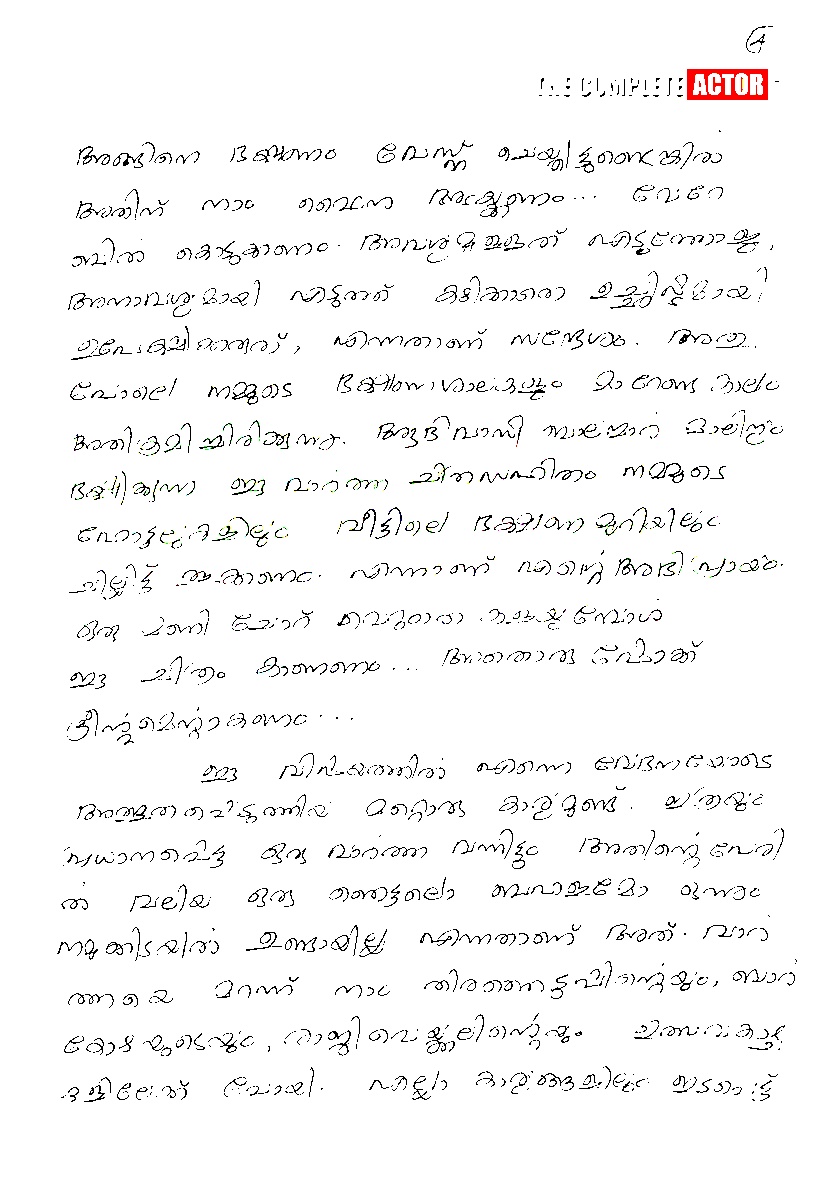 4
THE COMPLETE ACTOR
അങ്ങിനെ ഭക്ഷണം വേസ്റ്റ് ചെയ്തിട്ടുണ്ടെങ്കിൽ
അതിന് നാം ഫൈന അടയ്ക്കണം... വേറേ
ബിൽ കൊടുക്കണം. അവശ്യമുള്ളത് എടുത്തോളൂ,
അനാവശ്യമായി എടുത്ത് കഴിക്കാതെ ഉച്ഛിഷ്ടമായി
ഉപേക്ഷിക്കരുത്, എന്നതാണ് സന്ദേശം. അതു
പോലെ നമ്മുടെ ഭക്ഷണശാലകളും മാറേണ്ട കാലം
അതിക്രമിച്ചിരിക്കുന്നു. ആദിവാസി ബാലന്മാർ മാലിന്യം
ഭക്ഷിക്കുന്ന ഈ വാർത്ത ചിത്രസഹിതം നമ്മുടെ
ഹോട്ടലുകളിലും വീട്ടിലെ ഭക്ഷണമുറിയിലും
ചില്ലിട്ട് വെക്കണം. എന്നാണ് എന്റെ അഭിപ്രായം.
ഒരു മണി ചോറ് വെറുതെ കളയുമ്പോൾ
ഈ ചിത്രം കാണണം... അതൊരു ഷോക്ക്
ട്രീറ്റ്മെന്റാകണം...
ഈ വിഷയത്തിൽ എന്നെ വേദനയോടെ
അത്ഭുതപ്പെടുത്തിയ മറ്റൊരു കാര്യമുണ്ട്. ഇത്രയും
പ്രധാനപ്പെട്ട ഒരു വാർത്ത വന്നിട്ടും അതിന്റെ പേരി
ൽ വലിയ ഒരു ഞെട്ടലൊ ബഹളമോ ഒന്നും
നമുക്കിടയിൽ ഉണ്ടായില്ല എന്നതാണ് അത്. വാർ
ത്തയെ മറന്ന് നാം തിരഞ്ഞെടുപ്പിന്റെയും, ബാർ
കോഴയുടെയും, രാജിവെയ്ക്കലിന്റെയും ഉത്സവകാഴ്ച
കളിലേക്ക് പോയി. എല്ലാ കാര്യങ്ങളിലും ഇടപെട്ട്